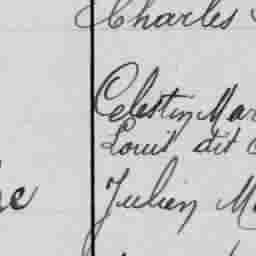 Charles
Celestin Mar
Louis dit
Julien M